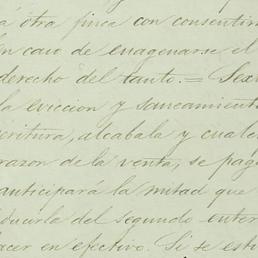 á otra finca con consentim
en caso de enagenarse el
derecho del tanto.= Sext
la eviccion y saneamiento
critura, alcabala y cuale
razon de la venta, se pag
anticipará la mitad que
ducirla del segundo enter
hacer en efectivo. Si se esti